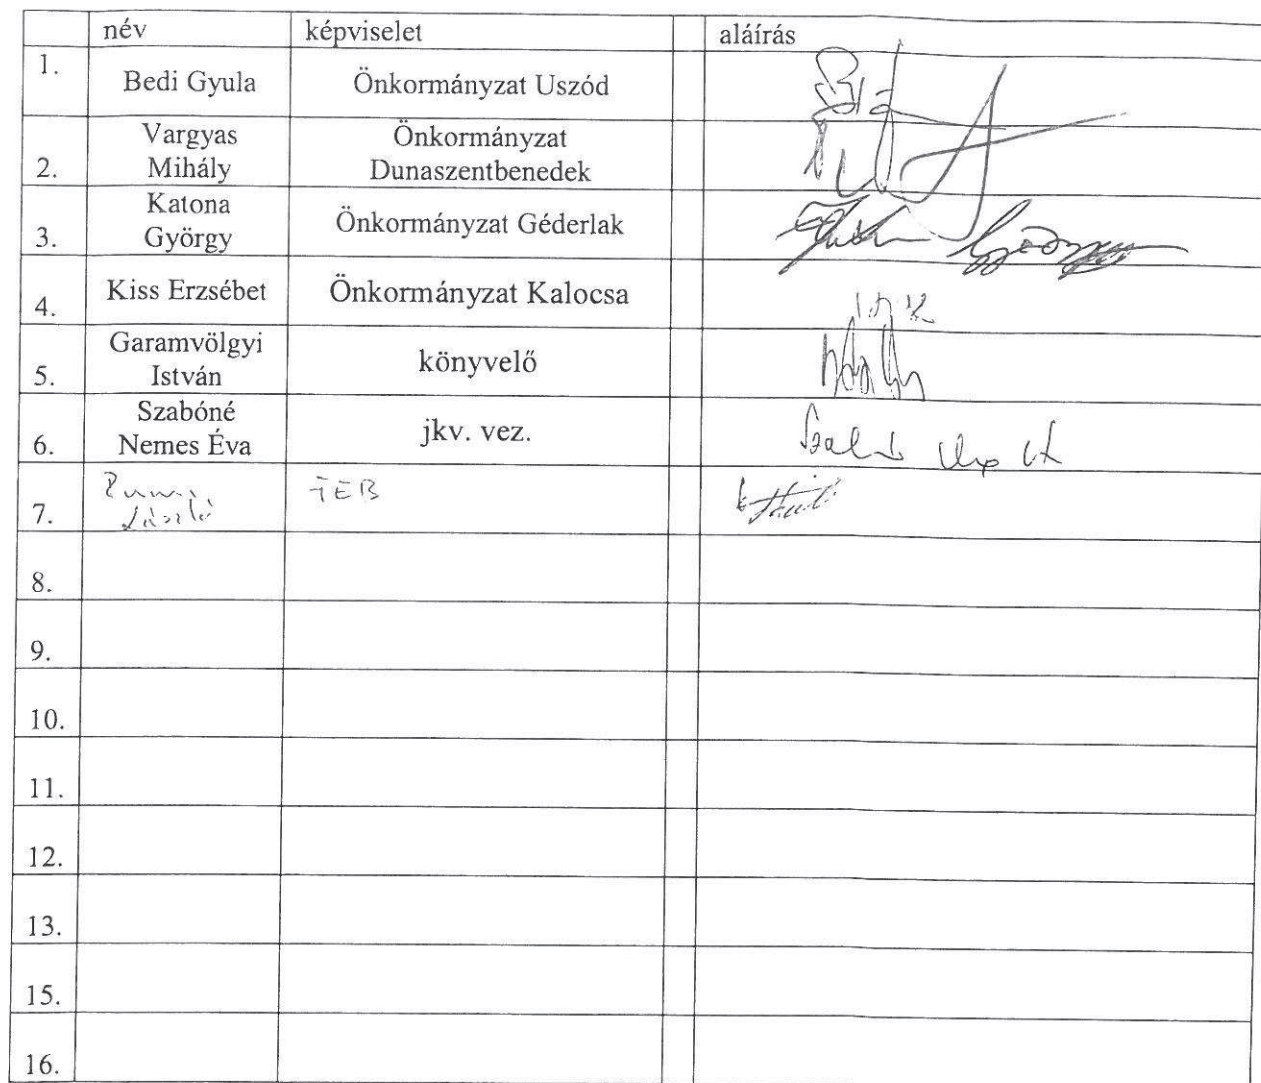 név képviselet aláírás
1. Bedi Gyula Önkormányzat Uszód
Vargyas Önkormányzat
2. Mihály Dunaszentbenedek
Katona
3. György Önkormányzat Géderlak
4. Kiss Erzsébet Önkormányzat Kalocsa
Garamvölgyi
5. István könyvelő
Szabóné
6. Nemes Éva jkv. vez.
FEB
7. László
8.
9.
10.
11.
12.
13.
15.
16.